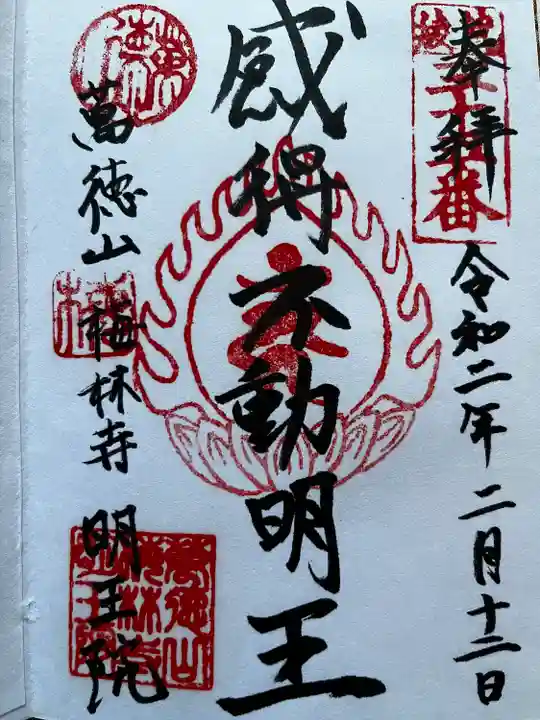 奉拝
令和二年二月十二日
感得不動明王
萬徳山梅林寺明王院